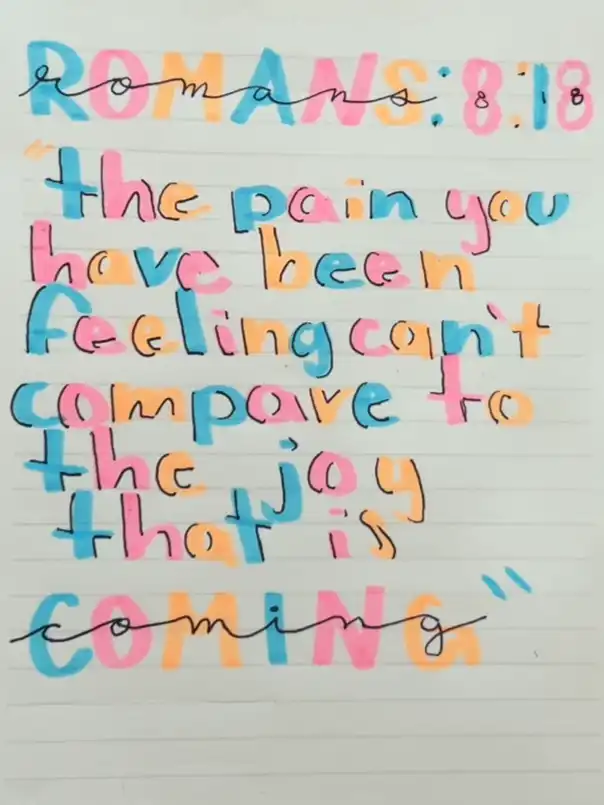 ROMANS:8:18
romans 8 18
"the pain you
have been
feeling can't
compare to
the joy
that is
COMING"
coming